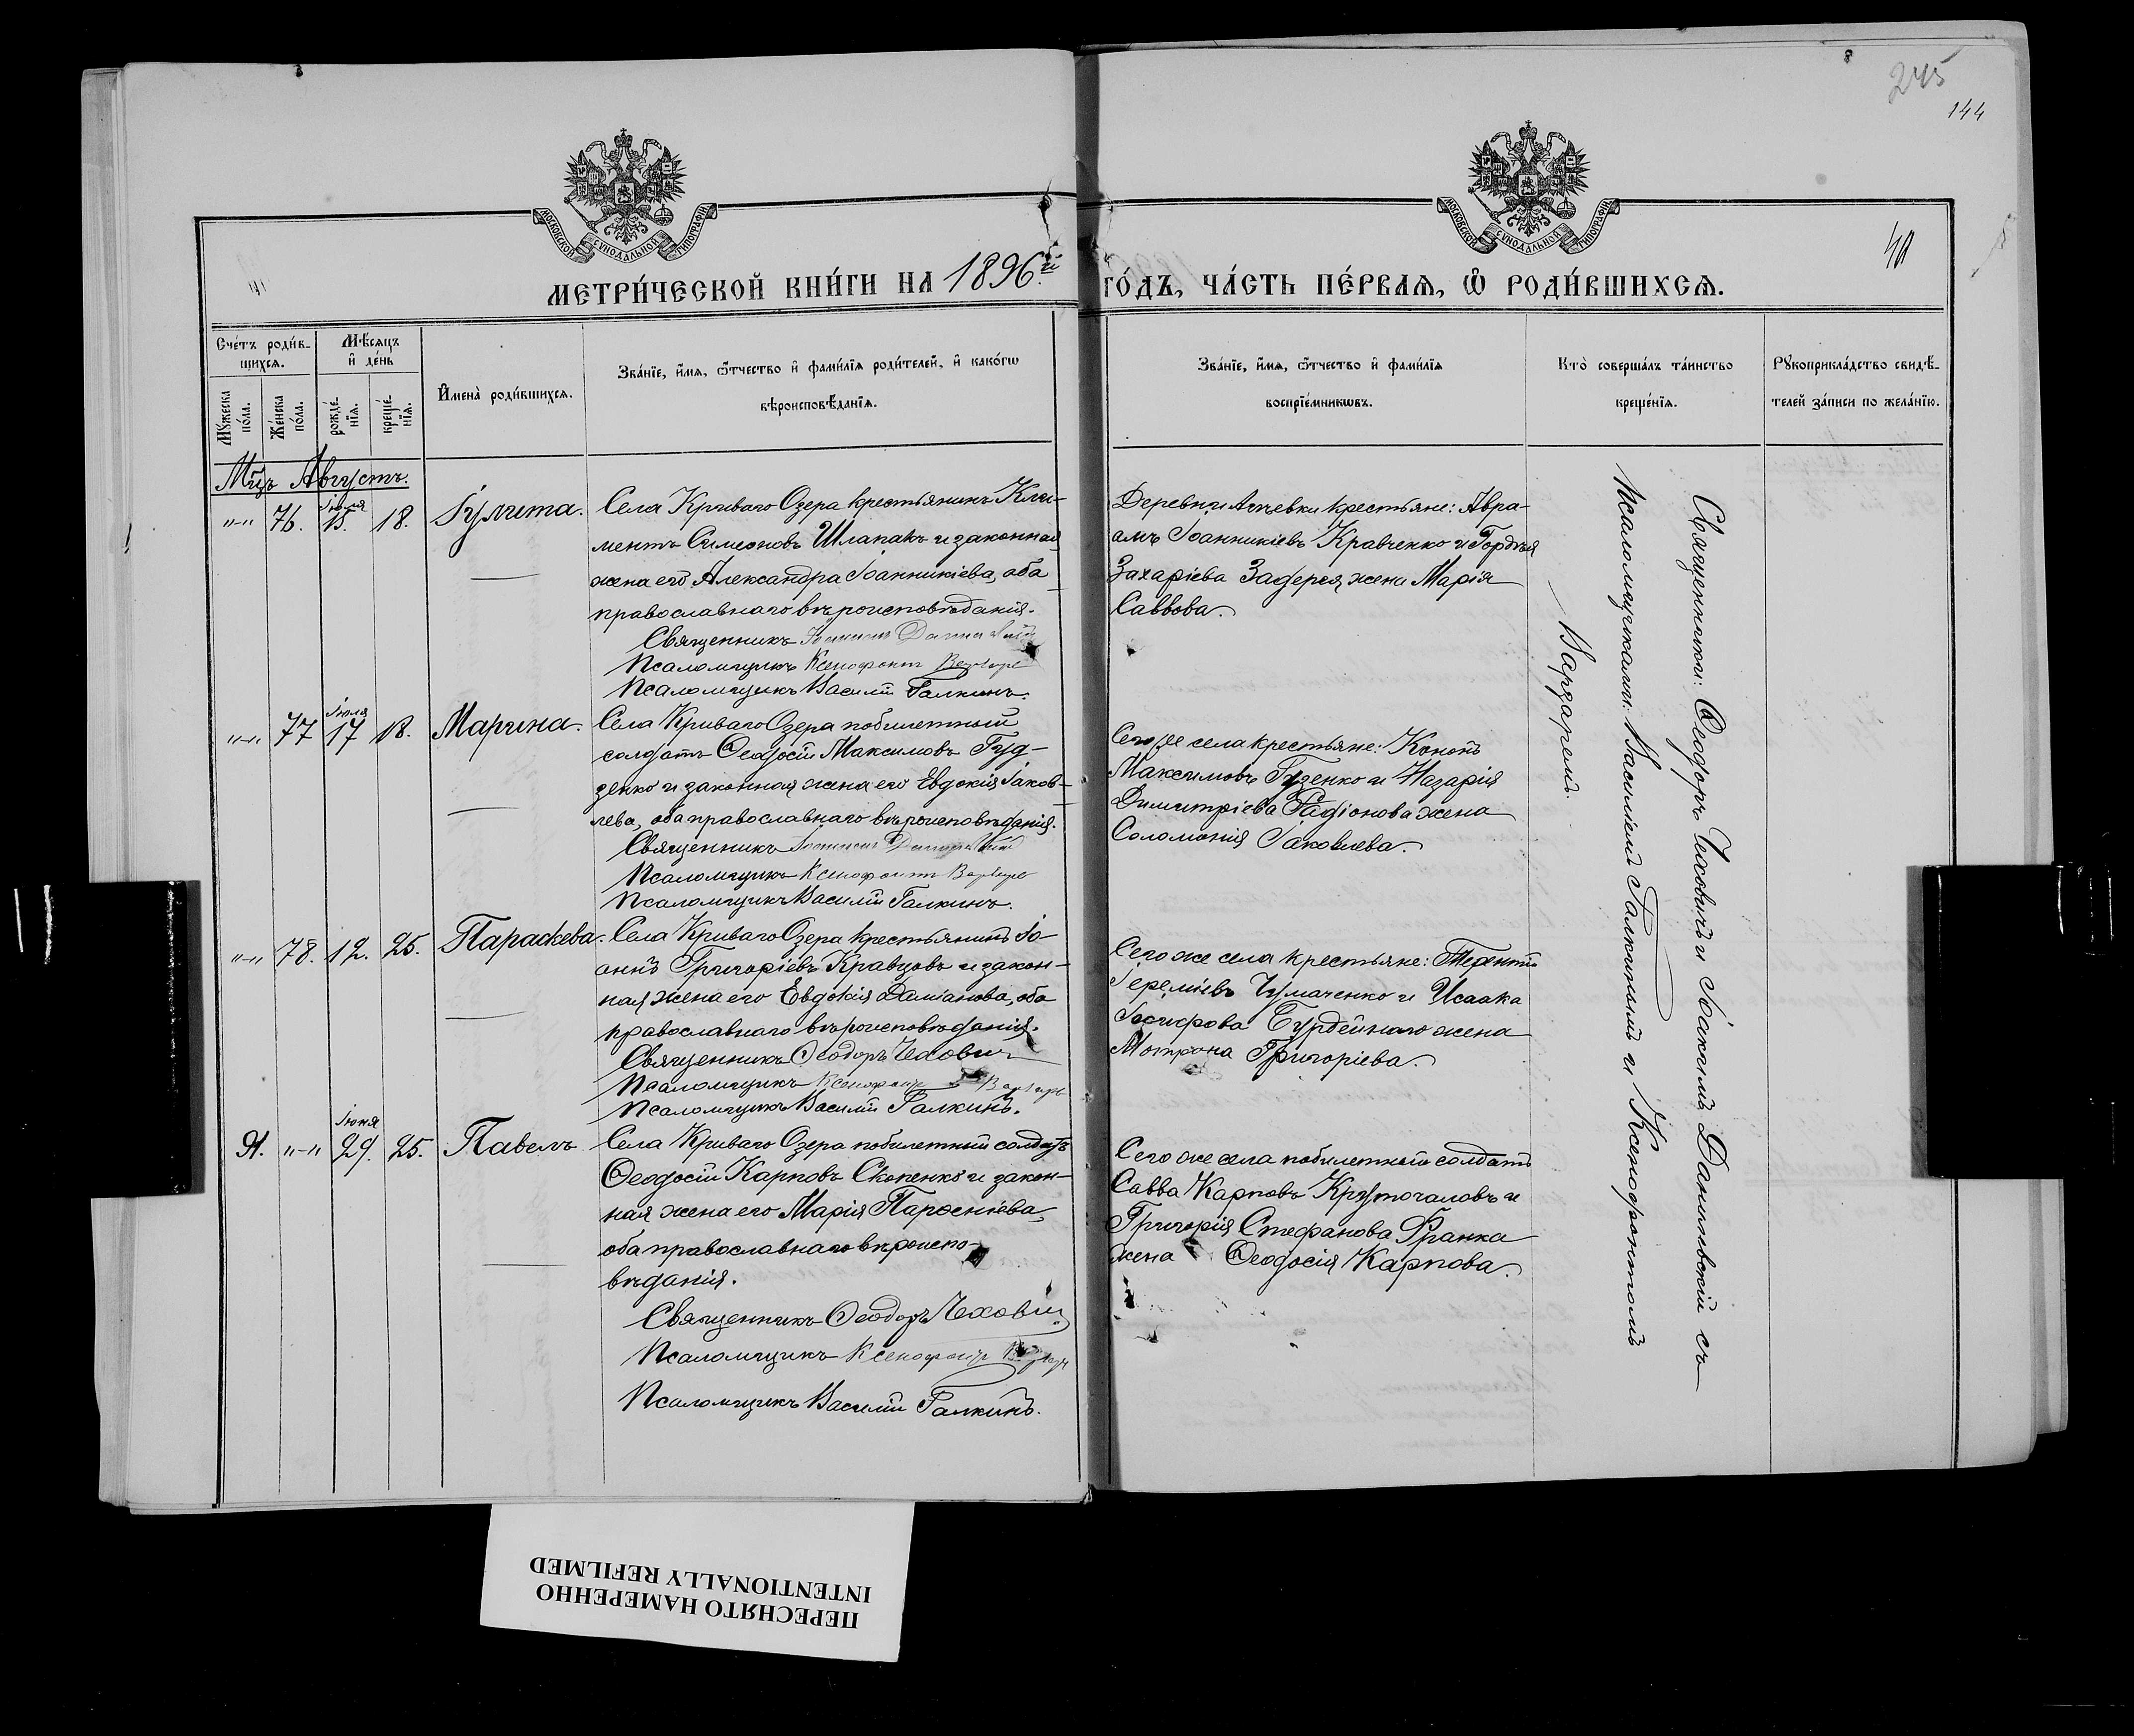 245
144
МОСКОВСКОЙ СѴНОДАЛЬНОЙ ТИПОГРАФІИ
МОСКОВСКОЙ СѴНОДАЛЬНОЙ ТИПОГРАФІИ
40
МЕТРИ́ЧЕСКОЙ КНИ́ГИ НА 1896.й ГО́ДЪ, ЧА́СТЬ ПЕ́РВАѦ, Ѡ҆ РОДИ́ВШИХСѦ.
Сче́тъ роди́в-
шихсѧ.
Мѣ́сѧцъ
и҆ де́нь
Мꙋ́жеска
по́ла.
Же́нска
по́ла.
рожде́-
нїѧ.
креще́-
нїѧ.
И҆мена̀ роди́вшихсѧ.
Зва́нїе, и҆́мѧ, ѻ҆́тчество и҆ фами́лїѧ роди́телей, и҆ како́гѡ
вѣроисповѣ́данїѧ.
Зва́нїе, и҆́мѧ, ѻ҆́тчество и҆ фами́лїѧ
воспрїе́мникѡвъ.
Кто̀ соверша́лъ та́инство
креще́нїѧ.
Рꙋкоприкла́дство свидѣ́-
телей за́писи по жела́нїю.
Мцъ Августъ.
"-" 76. Іюля 15. 18. Іулита.
Села Криваго Озера крестьянинъ Кли-
ментъ Симеоновъ Шлапакъ и законная
жена его Александра Іоанникіева, оба
православнаго вѣроисповѣданія.
Священникъ
Псаломщикъ Ксенофонтъ
Псаломщикъ Василій Галкинъ.
Деревни крестьяне: Авра-
амъ Іоанникіевъ Кравченко и Гордѣя
Захаріева Задерея жена Марія
Саввова.
"-" 77 Іюля 17 18. Марина.
Села Криваго Озера побилетный
солдатъ Ѳеодосій Максимовъ Гуд-
зенко и законная жена его Евдокія Іаков-
лева, оба православнаго вѣроисповѣданія.
Священникъ
Псаломщикъ Ксенофонтъ
Псаломщикъ Василій Галкинъ.
Сего же села крестьяне: Кононъ
Максимовъ Гузенко и Назарія
Димитріева Радіонова жена
Соломонія Іаковлева.
"-" 78. 12. 25. Параскева.
Села Криваго Озера крестьянинъ Іо-
аннъ Григоріевъ Кравцовъ и закон-
ная жена его Евдокія Даміанова, оба
православнаго вѣроисповѣданія.
Священникъ Ѳеодоръ Чехович
Псаломщикъ Ксенофонтъ
Псаломщикъ Василій Галкинъ.
Сего же села крестьяне: Терентій
Іереміевъ Чумаченко и Исаака
Іосифова Бурдейнаго жена
Матрона Григоріева.
91. "-" Іюня 29. 25. Павелъ
Села Криваго Озера побилетный солдатъ
Ѳеодосій Карповъ Скопенко и закон-
ная жена его Марія Парѳеніева,
оба православнаго вѣроиспо-
вѣданія.
Священникъ Ѳеодоръ Чехович
Псаломщикъ Ксенофонтъ
Псаломщикъ Василій Галкинъ.
Сего же села побилетный солдатъ
Савва Карповъ и
Григорія Стефанова Франка
жена Ѳеодосія Карпова.
Священники: Ѳеодоръ Чеховичъ и Іоакимъ Данилевскій съ
Псаломщиками: Василіемъ Галкинымъ и Ксенофонтомъ
Варзаремъ.
ПЕРЕСНЯТО НАМЕРЕННО
INTENTIONALLY REFILMED